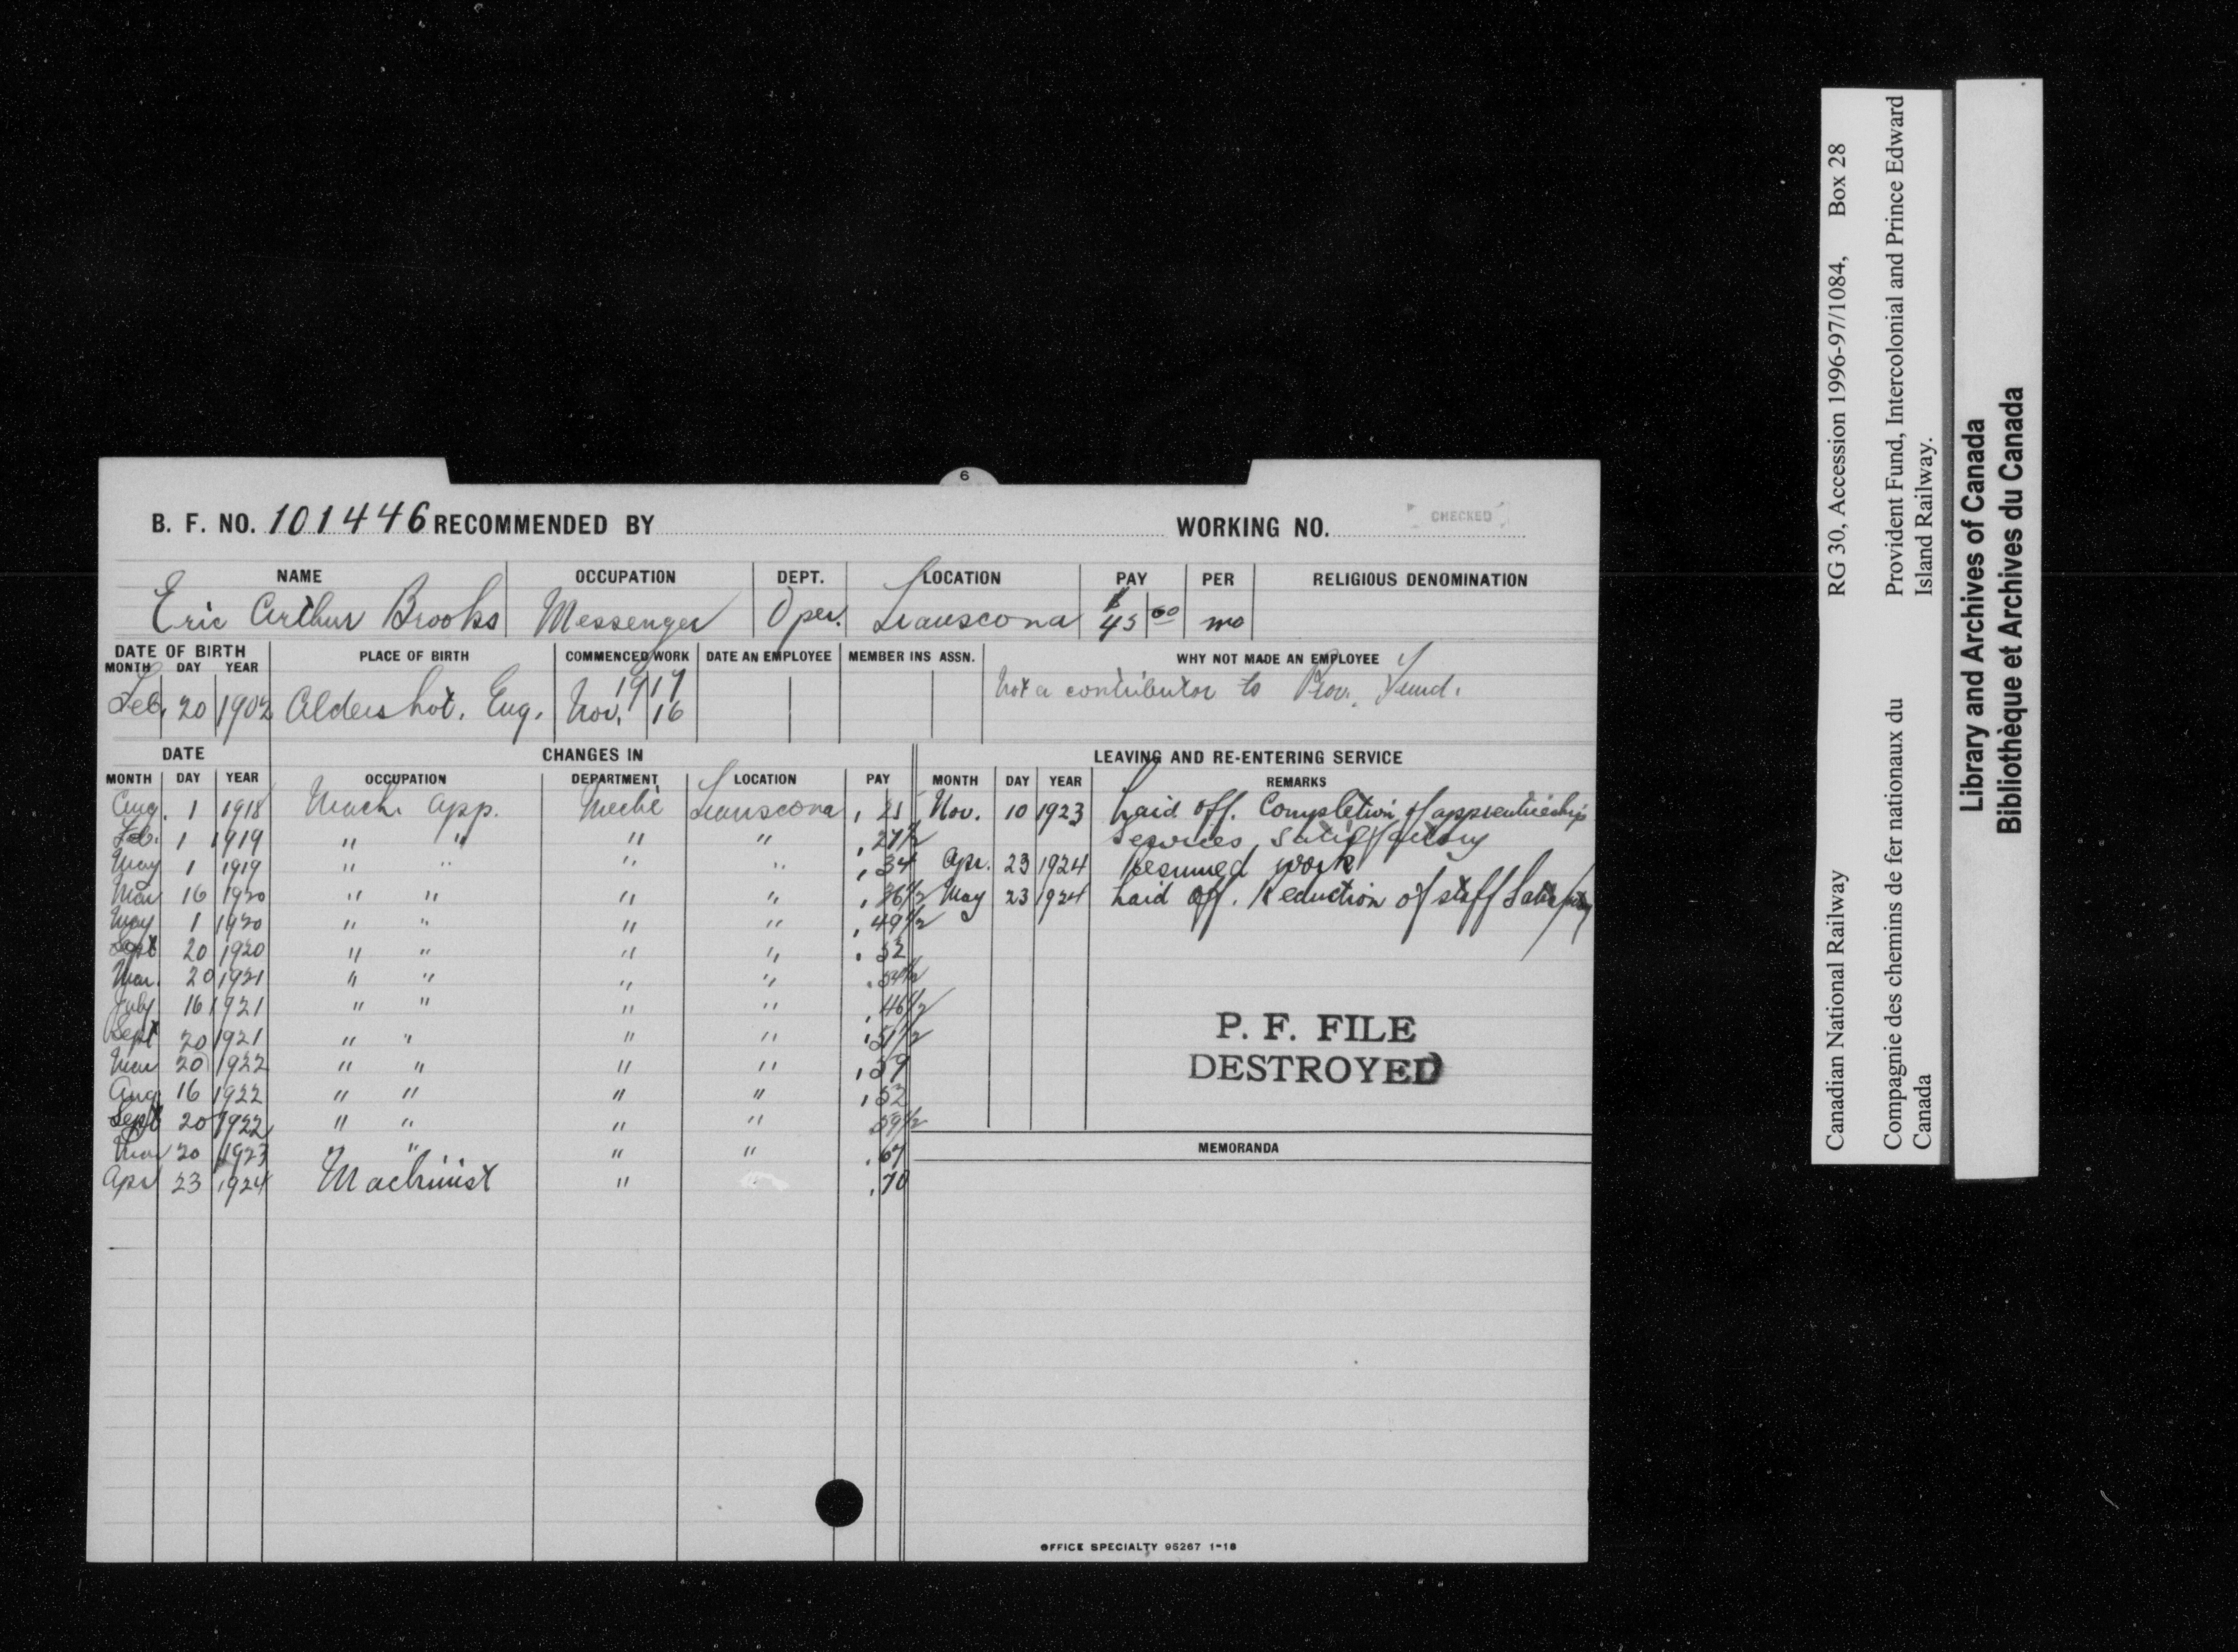 6
B. F. NO. 101446 RECOMMENDED BY WORKING NO. CHECKED
NAME OCCUPATION DEPT. LOCATION PAY PER RELIGIOUS DENOMINATION
Eric Arthur Brooks Messenger Oper. Transcona $45 00 mo
DATE OF BIRTH PLACE OF BIRTH COMMENCED WORK DATE AN EMPLOYEE MEMBER INS ASSN. WHY NOT MADE AN EMPLOYEE
MONTH DAY YEAR
Feb. 20 1902 Aldershot. Eng. Nov. 16 1917 Not a contributor to Prov. Fund.
DATE CHANGES IN LEAVING AND RE-ENTERING SERVICE
MONTH DAY YEAR OCCUPATION DEPARTMENT LOCATION PAY MONTH DAY YEAR REMARKS
Aug. 1 1918 Mach. App. Mech'l Transcona .25 Nov. 10 1923 Laid off. Completion of apprenticeship
Feb. 1 1919 " " " " .27 1/2 Services, satisfactory
May 1 1919 " " " " .34 Apr. 23 1924 Resumed work
Mar 16 1920 " " " " .36 1/2 May 23 1924 Laid off. Reduction of staff
May 1 1920 " " " " .49 1/2
Sept 20 1920 " " " " .52
Mar. 20 1921 " " " " .54 1/2
July 16 1921 " " " " .46 1/2
Sept 20 1921 " " " " .51 1/2
Mar 20 1922 " " " " .59
Aug 16 1922 " " " " .52
Sept 20 1922 " " " " .59 1/2
Mar 20 1923 " " " " .67
Apr 23 1924 Machinist " " .70
P. F. FILE
DESTROYED
MEMORANDA
OFFICE SPECIALTY 95267 1-18
Canadian National Railway RG 30, Accession 1996-97/1084, Box 28
Compagnie des chemins de fer nationaux du Provident Fund, Intercolonial and Prince Edward
Canada Island Railway.
Library and Archives of Canada
Bibliothèque et Archives du Canada